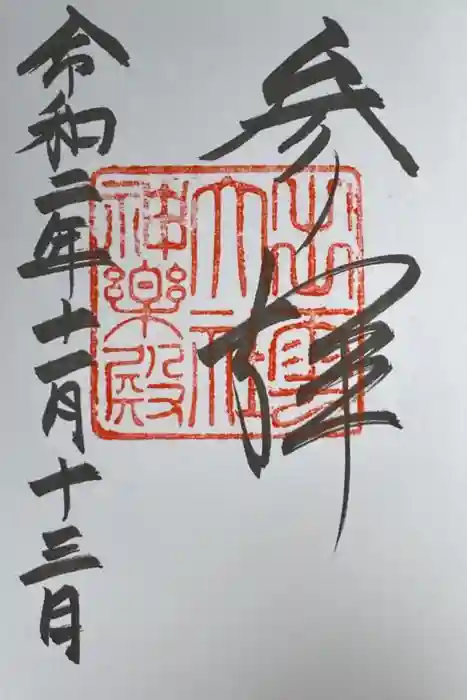 参拝
出雲
大社
神楽殿
令和二年十一月十三日